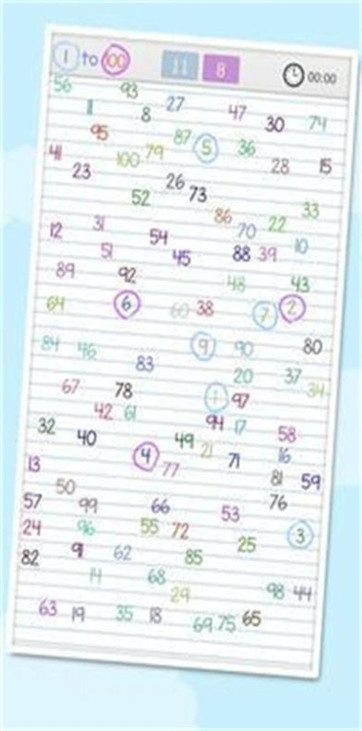 1 to 100 11 8 00:00
56 93
11 8 27 47 30 74
95 87 5 36
41 100 79 28 15
23 26 73
52 86 33
12 31 54 70 22
51 45 88 39 10
89 92 48 43
64 6 60 38 7 2
84 46 9 90 80
83 20 37
67 78 1 97 34
42 61 94 17
32 40 49 21 58
13 4 77 71 16
50 81 59
57 99 66 53 76
24 96 55 72 25 3
82 91 62 85
14 68
29 98 44
63 19 35 18 69 75 65